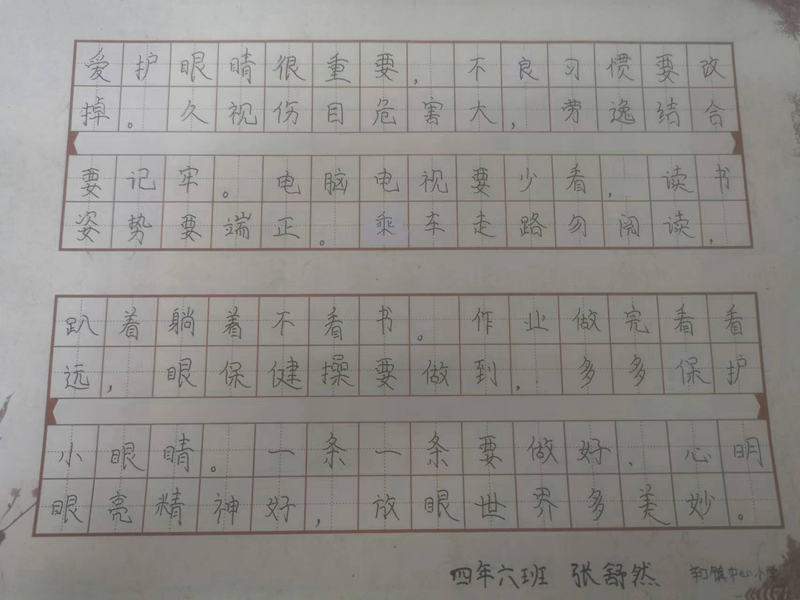 爱护眼睛很重要，不良习惯要改
掉。久视伤目危害大，劳逸结合
要记牢。电脑电视要少看，读书
姿势要端正。乘车走路勿阅读，
趴着躺着不看书。作业做完看看
远，眼保健操要做到，多多保护
小眼睛。一条一条要做好，心明
眼亮精神好，放眼世界多美妙。
四年六班 张舒然
镇中心小学